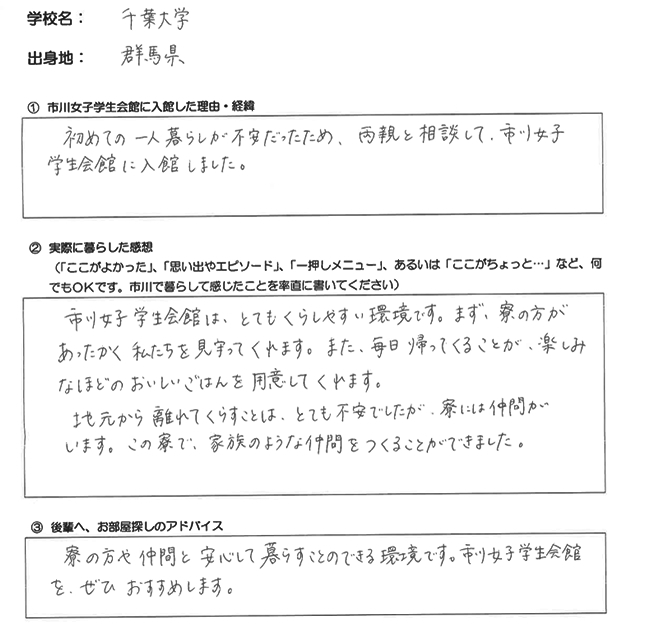 学校名： 千葉大学
出身地： 群馬県
① 市川女子学生会館に入館した理由・経緯
初めての一人暮らしが不安だったため、両親と相談して、市川女子
学生会館に入館しました。
② 実際に暮らした感想
（「ここがよかった」、「思い出やエピソード」、「一押しメニュー」、あるいは「ここがちょっと…」など、何
でもOKです。市川で暮らして感じたことを率直に書いてください）
市川女子学生会館は、とてもくらしやすい環境です。まず、寮の方が
あったかく私たちを見守ってくれます。また、毎日帰ってくることが、楽しみ
なほどのおいしいごはんを用意してくれます。
地元から離れてくらすことは、とても不安でしたが、寮には仲間が
います。この寮で、家族のような仲間をつくることができました。
③ 後輩へ、お部屋探しのアドバイス
寮の方や仲間と安心して暮らすことのできる環境です。市川女子学生会館
を、ぜひおすすめします。